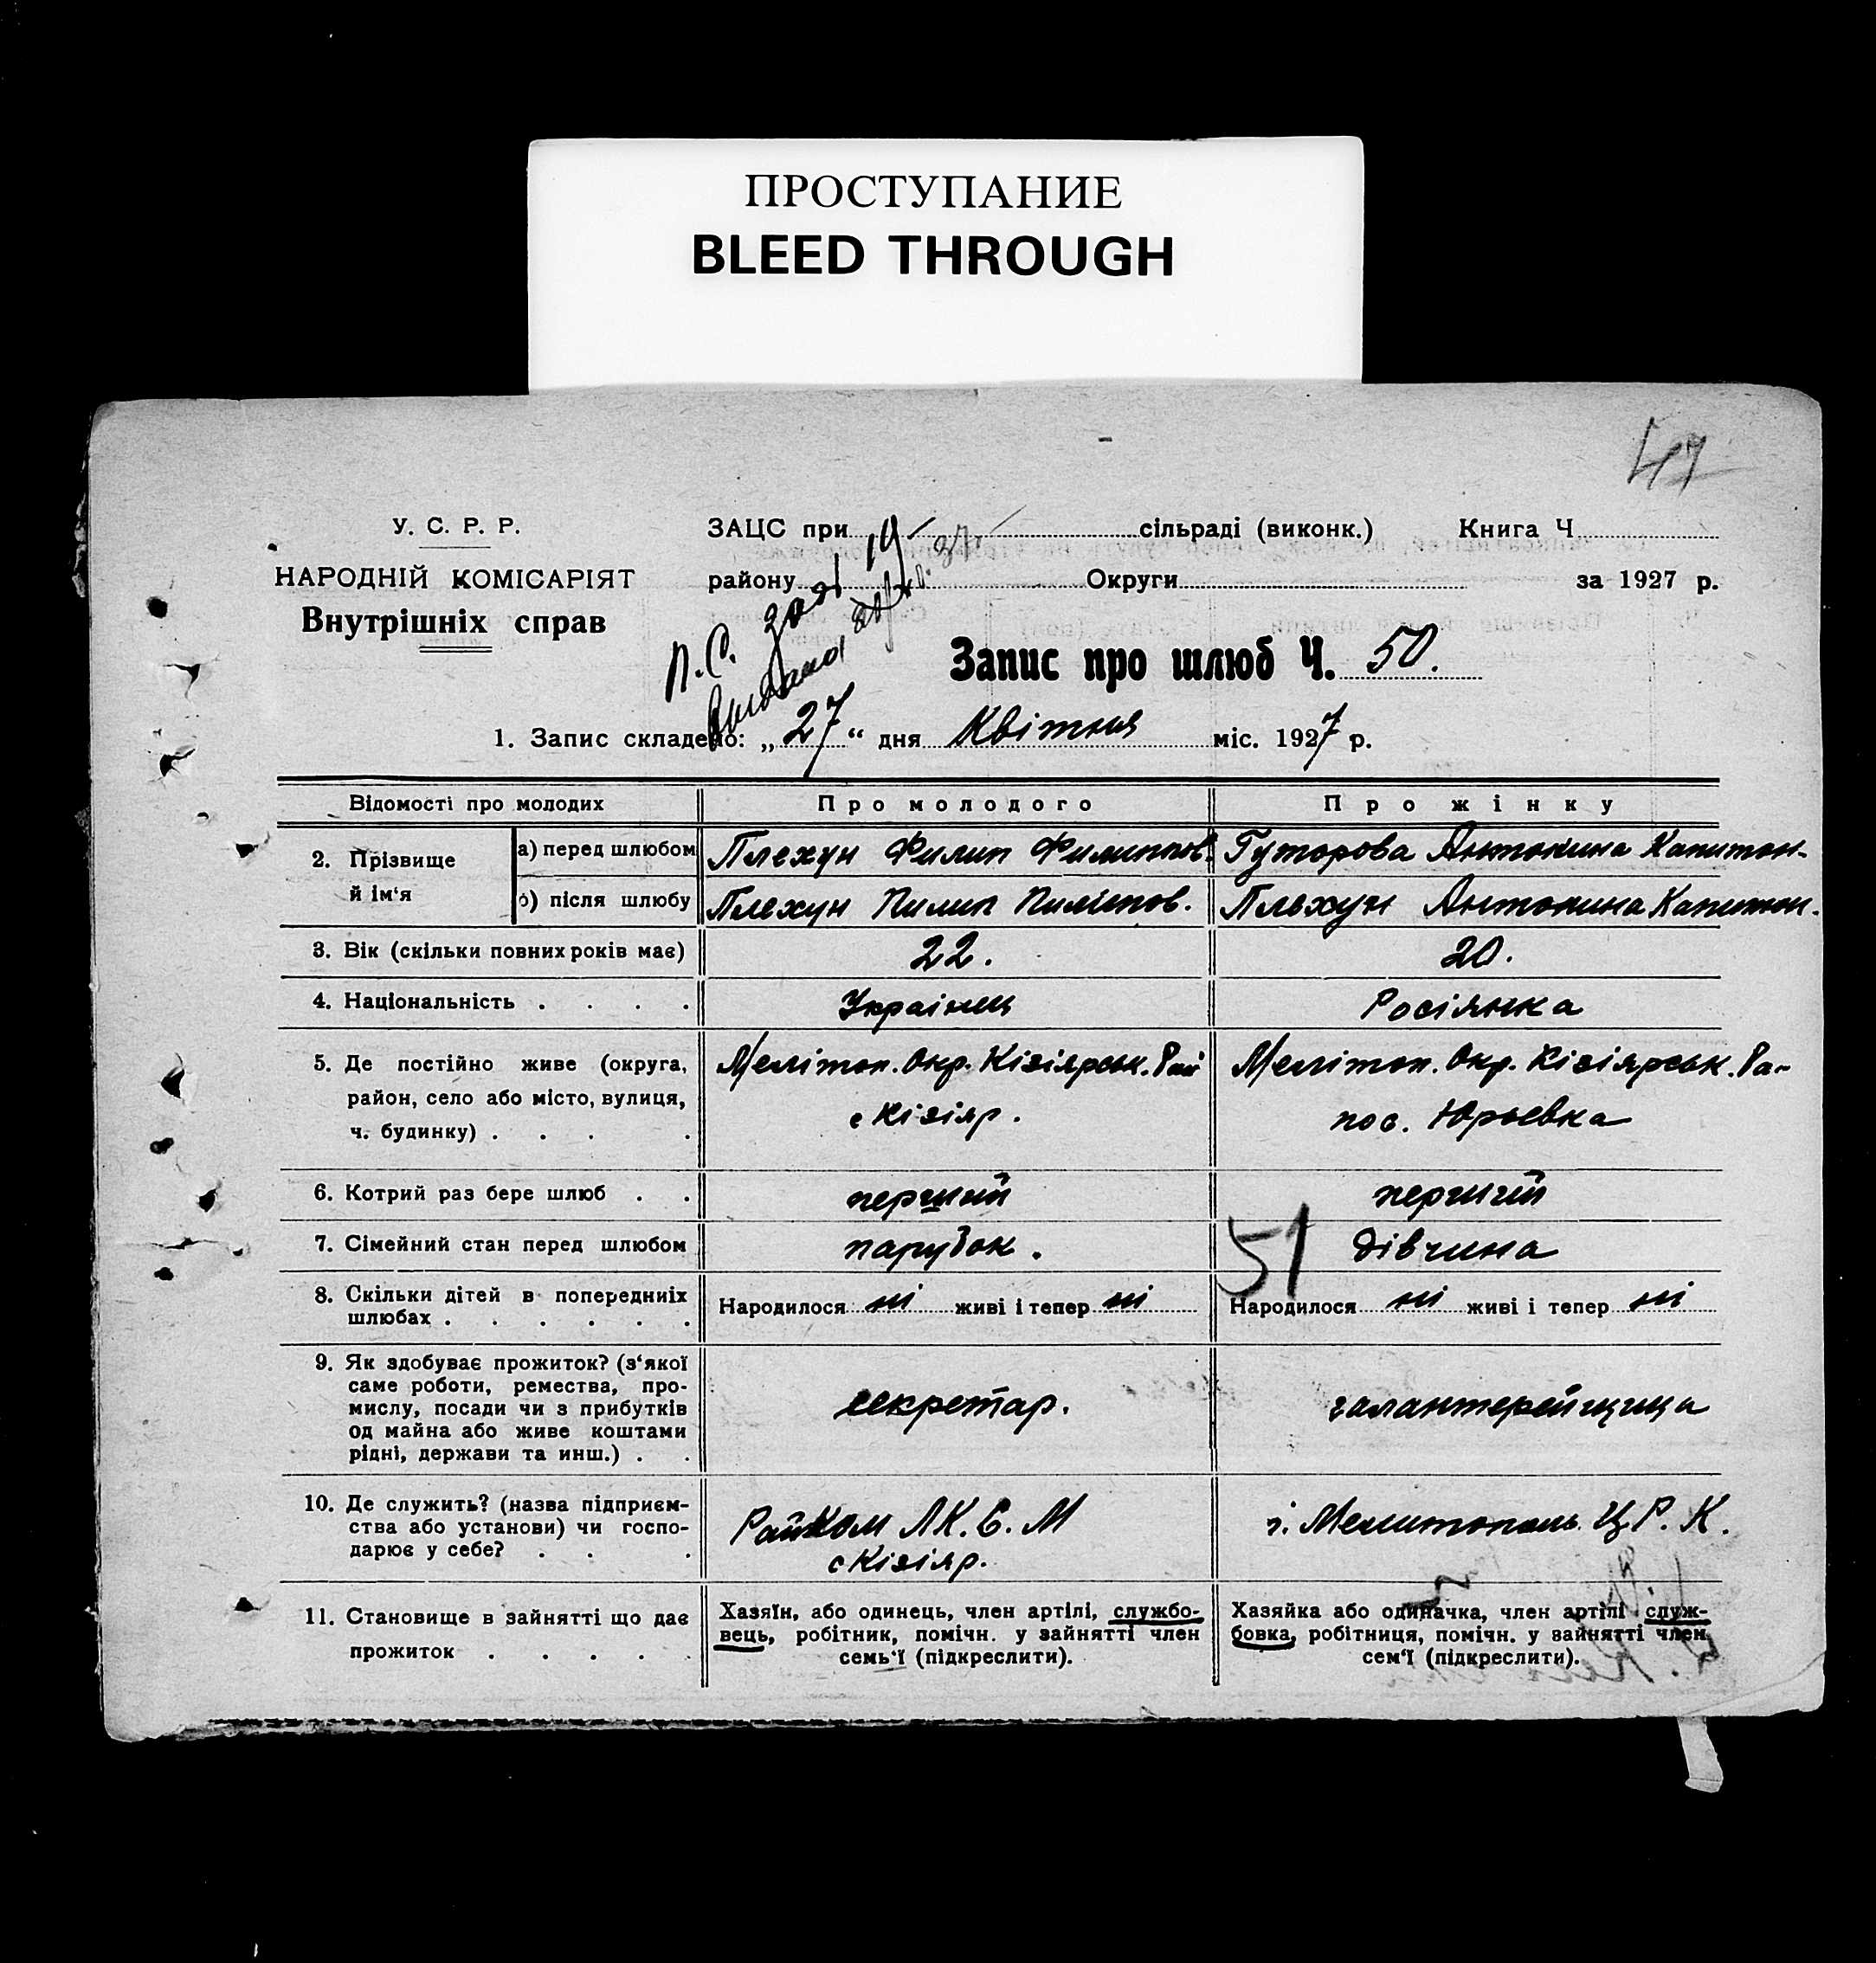 ПРОСТУПАНИЕ
BLEED THROUGH
47
У. С. Р. Р.
НАРОДНІЙ КОМІСАРІЯТ
Внутрішніх справ
ЗАЦС при сільраді (виконк.) Книга Ч.
району Округи за 1927 р.
П.С.
Запис про шлюб Ч. 50.
1. Запис складено: „27“ дня Квітня міс. 1927 р.
Відомості про молодих Про молодого Про жінку
2. Прізвище й ім‘я
а) перед шлюбом Плехун Филип Филиппов. Гуторова Антонина Капитон-
б) після шлюбу Плехун Пилип Пиліпов. Плехун Антонина Капитон.
3. Вік (скільки повних років має) 22. 20.
4. Національність . . . . Українець Росіянка
5. Де постійно живе (округа, Мелітоп. Окр. Кізіярськ. Рай Мелітоп. Окр. Кізіярськ. Ра-
район, село або місто, вулиця, с Кізіяр. пос. Юрьевка
ч. будинку) . . . .
6. Котрий раз бере шлюб . . перший перший
7. Сімейний стан перед шлюбом парубок. 51 дівчина
8. Скільки дітей в попередниіх Народилося ні живі і тепер ні Народилося ні живі і тепер ні
шлюбах . . . . . .
9. Як здобуває прожиток? (з‘якої
саме роботи, ремества, про-
мислу, посади чи з прибутків секретар. галантерейщица
од майна або живе коштами
рідні, держави та инш.) . .
10. Де служить? (назва підприєм- Райком ЛК.С.М г. Мелитополь ЦР.К.
ства або установи) чи госпо- с Кізіяр.
дарює у себе? . . .
11. Становище в зайнятті що дає
прожиток . . . . .
Хазяїн, або одинець, член артілі, службо-
вець, робітник, помічн. у зайнятті член
семь‘ї (підкреслити).
Хазяйка або одиначка, член артілі служ-
бовка, робітниця, помічн. у зайнятті член
сем‘ї (підкреслити).